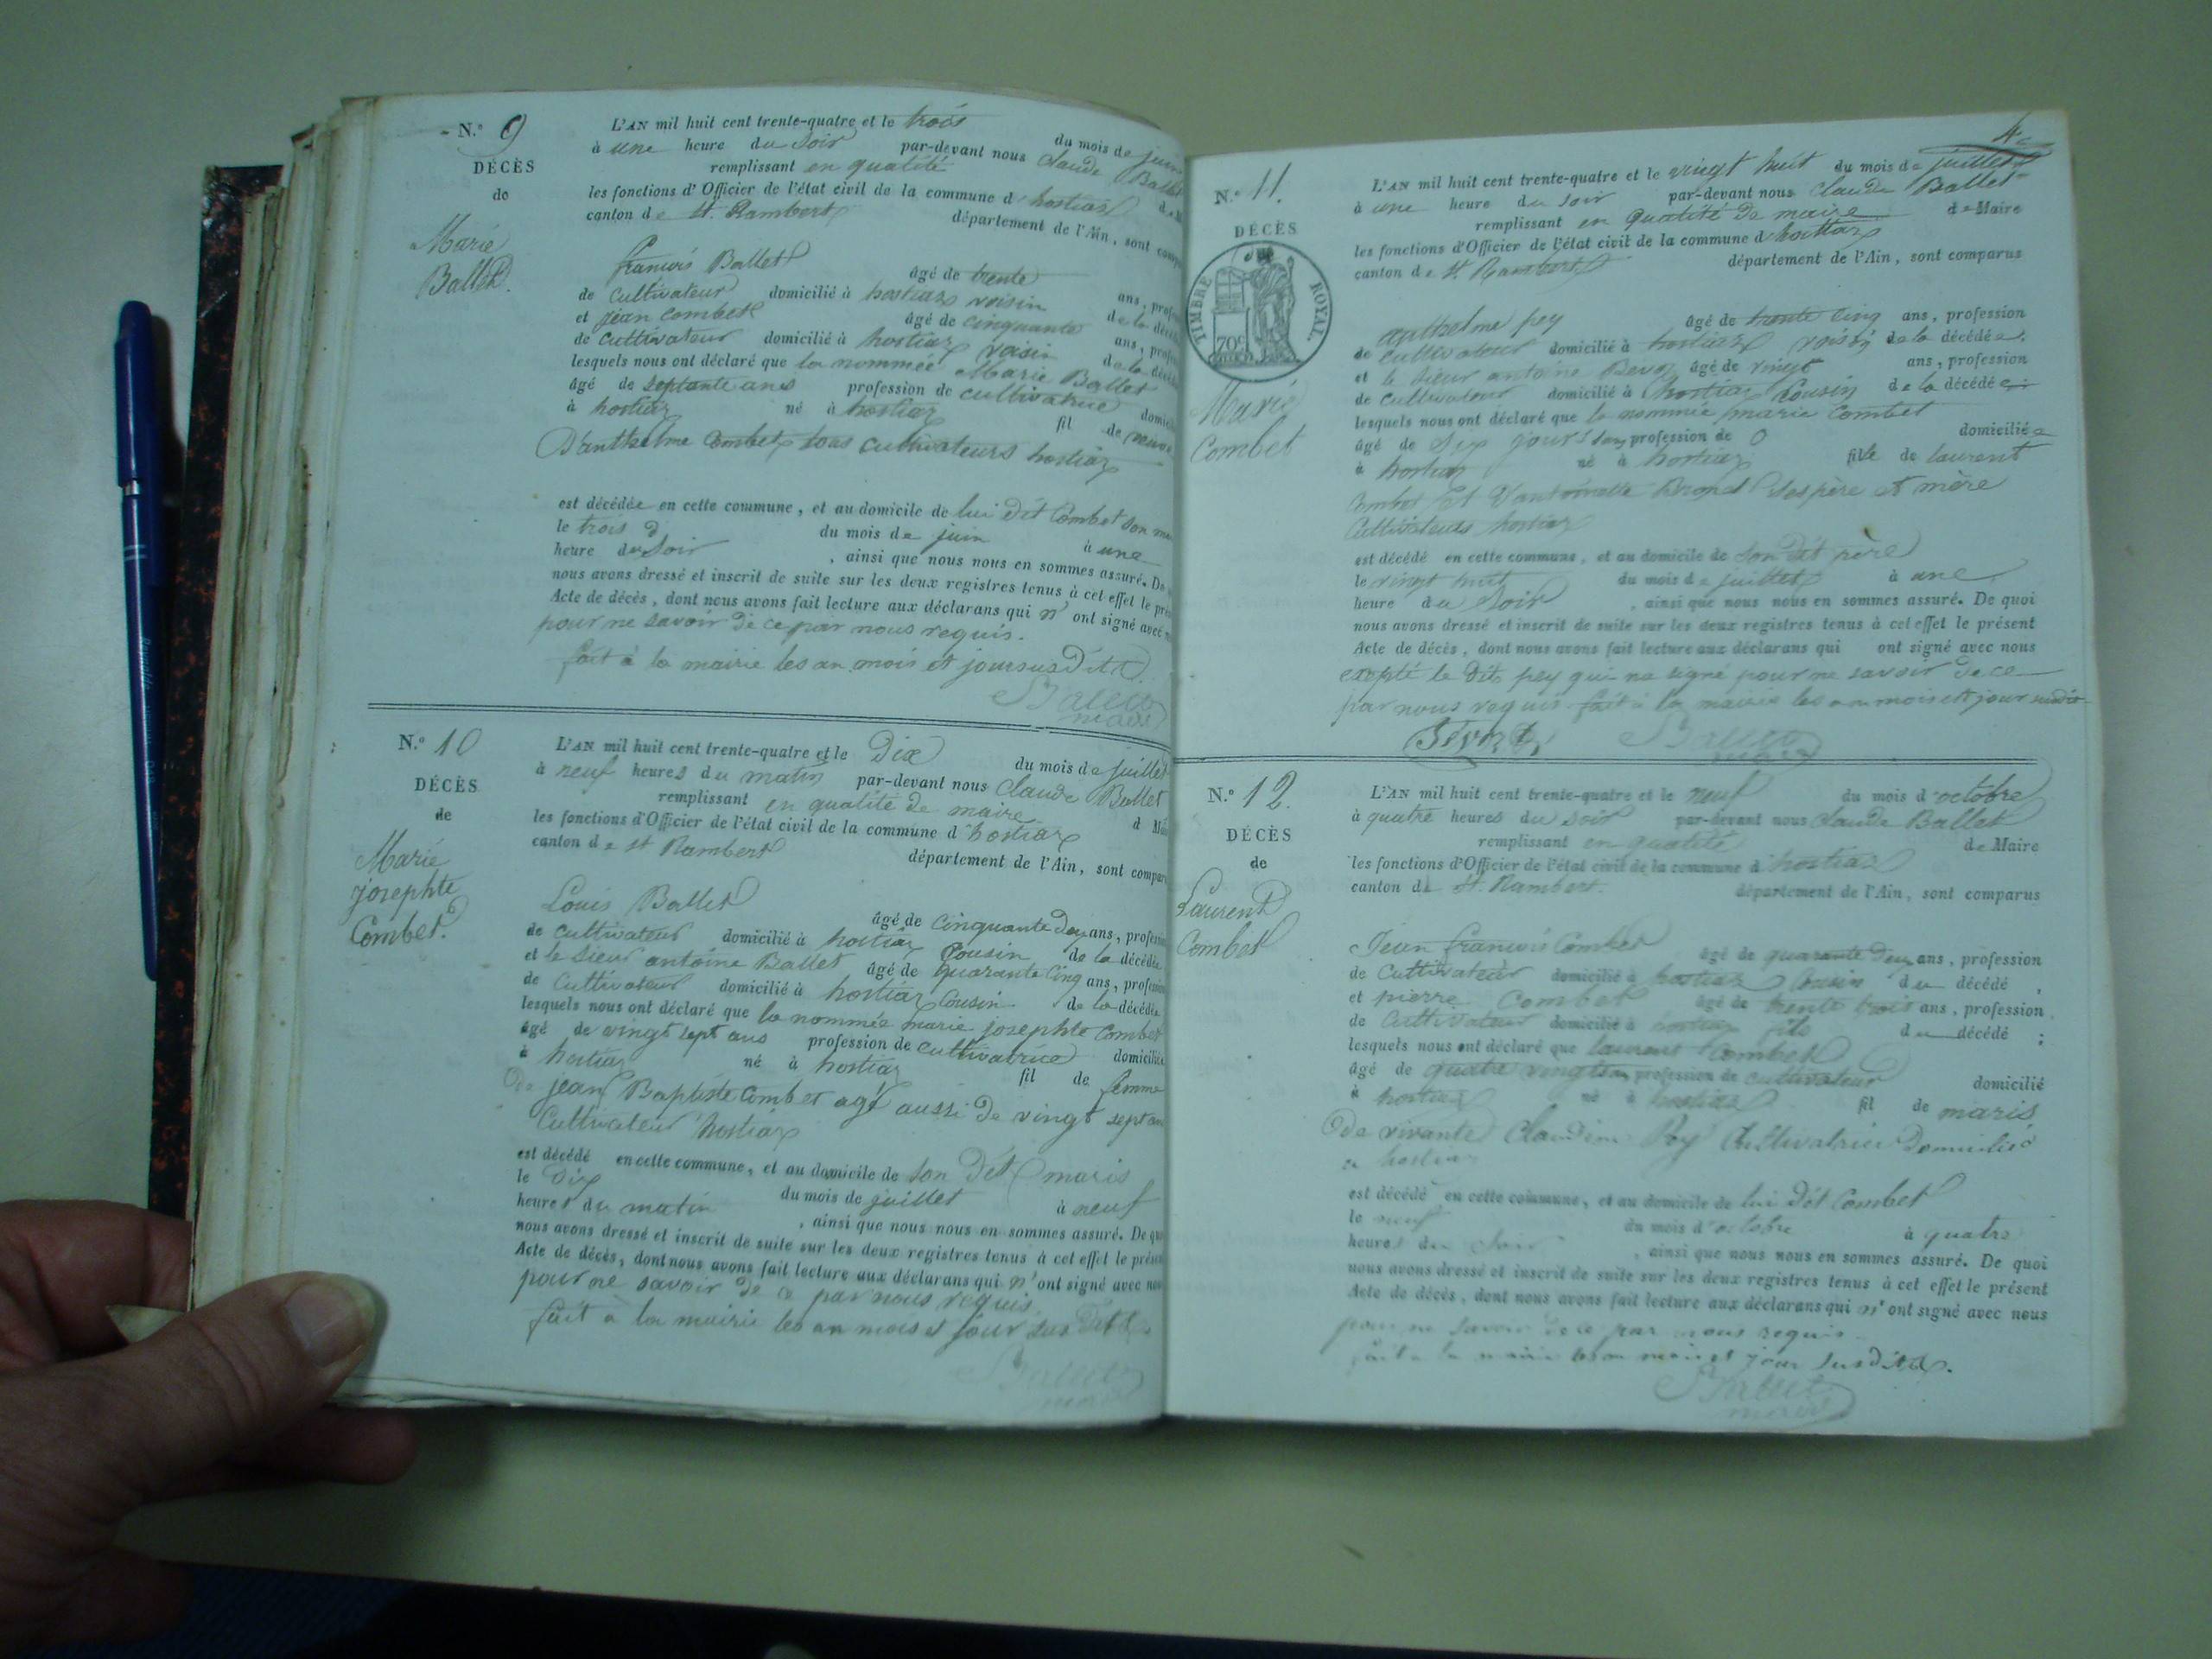 N.° 9
DÉCÈS
de
Marie
Ballet.
L'AN mil huit cent trente-quatre et le trois du mois de juin
à une heure du soir par-devant nous Claude Ballet
remplissant en qualité
les fonctions d'Officier de l'état civil de la commune d'hostiaz
canton de St. Rambert département de l'Ain, sont
françois Ballet âgé de trente ans,
de cultivateur domicilié à hostiaz voisin de la
et jean Combet âgé de cinquante ans,
de cultivateur domicilié à hostiaz voisin de la
lesquels nous ont déclaré que la nommée Marie Ballet
âgé de septante ans profession de cultivatrice
à hostiaz né à hostiaz fil de
D'anthelme Combet tous cultivateurs hostiaz
est décédée en cette commune, et au domicile de lui dit Combet son
le trois du mois de juin à une
heure du soir , ainsi que nous nous en sommes assuré. De
nous avons dressé et inscrit de suite sur les deux registres tenus à cet effet le
Acte de décès, dont nous avons fait lecture aux déclarans qui n' ont signé avec
pour ne savoir de ce par nous requis.
fait à la mairie les an mois et jour susdits
Ballet
maire
N.° 10
DÉCÈS
de
Marie
josephte
Combet.
L'AN mil huit cent trente-quatre et le Dix du mois de juillet
à neuf heures du matin par-devant nous Claude Ballet
remplissant en qualité de maire
les fonctions d'Officier de l'état civil de la commune d'hostiaz
canton de st Rambert département de l'Ain, sont
Louis Ballet âgé de cinquante deux ans,
de cultivateur domicilié à hostiaz Cousin de la décédée
et le sieur antoine Ballet âgé de quarante cinq ans,
de cultivateur domicilié à hostiaz Cousin de la décédée
lesquels nous ont déclaré que la nommée marie josephte Combet
âgé de vingt sept ans profession de cultivatrice domiciliée
à hostiaz né à hostiaz fil de femme
De jean Baptiste Combet agé aussi de vingt sept ans
Cultivateur hostiaz
est décédé en cette commune, et au domicile de son dit maris
le Dix du mois de juillet à neuf
heures du matin , ainsi que nous nous en sommes assuré. De
nous avons dressé et inscrit de suite sur les deux registres tenus à cet effet le
Acte de décès, dont nous avons fait lecture aux déclarans qui n' ont signé avec
pour ne savoir de ce par nous requis.
fait a la mairie les an mois et jour susdits
Ballet
maire
4
N.° 11.
DÉCÈS
de
TIMBRE ROYAL.
70c
Marie
Combet
L'AN mil huit cent trente-quatre et le vingt huit du mois de juillet
à une heure du soir par-devant nous Claude Ballet
remplissant en qualité de maire de Maire
les fonctions d'Officier de l'état civil de la commune d'hostiaz
canton de St Rambert département de l'Ain, sont comparus
anthelme pey âgé de trente cinq ans, profession
de cultivateur domicilié à hostiaz voisin de la décédée.
et le sieur antoine âgé de vingt ans, profession
de cultivateur domicilié à hostiaz Cousin de la décédée
lesquels nous ont déclaré que la nommée marie Combet
âgé de six jours profession de 0 domiciliée
à hostiaz né à hostiaz fille de laurent
Combet et D'antoinette ses père et mère
Cultivateurs hostiaz
est décédé en cette commune, et au domicile de son dit père
le vingt huit du mois de juillet à une
heure du soir , ainsi que nous nous en sommes assuré. De quoi
nous avons dressé et inscrit de suite sur les deux registres tenus à cet effet le présent
Acte de décès, dont nous avons fait lecture aux déclarans qui ont signé avec nous
excepté le dit pey qui na signé pour ne savoir de ce
par nous requis fait à la mairie les an mois et jour susdits
Ballet
maire
N.° 12.
DÉCÈS
de
Laurent
Combet
L'AN mil huit cent trente-quatre et le neuf du mois d'octobre
à quatre heures du soir par-devant nous Claude Ballet
remplissant en qualité de Maire
les fonctions d'Officier de l'état civil de la commune d'hostiaz
canton de St. Rambert. département de l'Ain, sont comparus
Jean françois Combet âgé de quarante deux ans, profession
de Cultivateur domicilié à hostiaz Cousin du décédé ,
et pierre Combet âgé de trente trois ans, profession
de Cultivateur domicilié à hostiaz fils du décédé ;
lesquels nous ont déclaré que laurent Combet
âgé de quatre vingts profession de cultivateur domicilié
à hostiaz né à hostiaz fil de maris
De vivante Claudine Pey Cultivatrice Domicilié
a hostiaz
est décédé en cette commune, et au domicile de lui dit Combet
le neuf du mois d'octobre à quatre
heures du soir , ainsi que nous nous en sommes assuré. De quoi
nous avons dressé et inscrit de suite sur les deux registres tenus à cet effet le présent
Acte de décès, dont nous avons fait lecture aux déclarans qui n' ont signé avec nous
pour ne savoir de ce par nous requis
fait a la mairie les an mois et jour susdits.
Ballet
maire